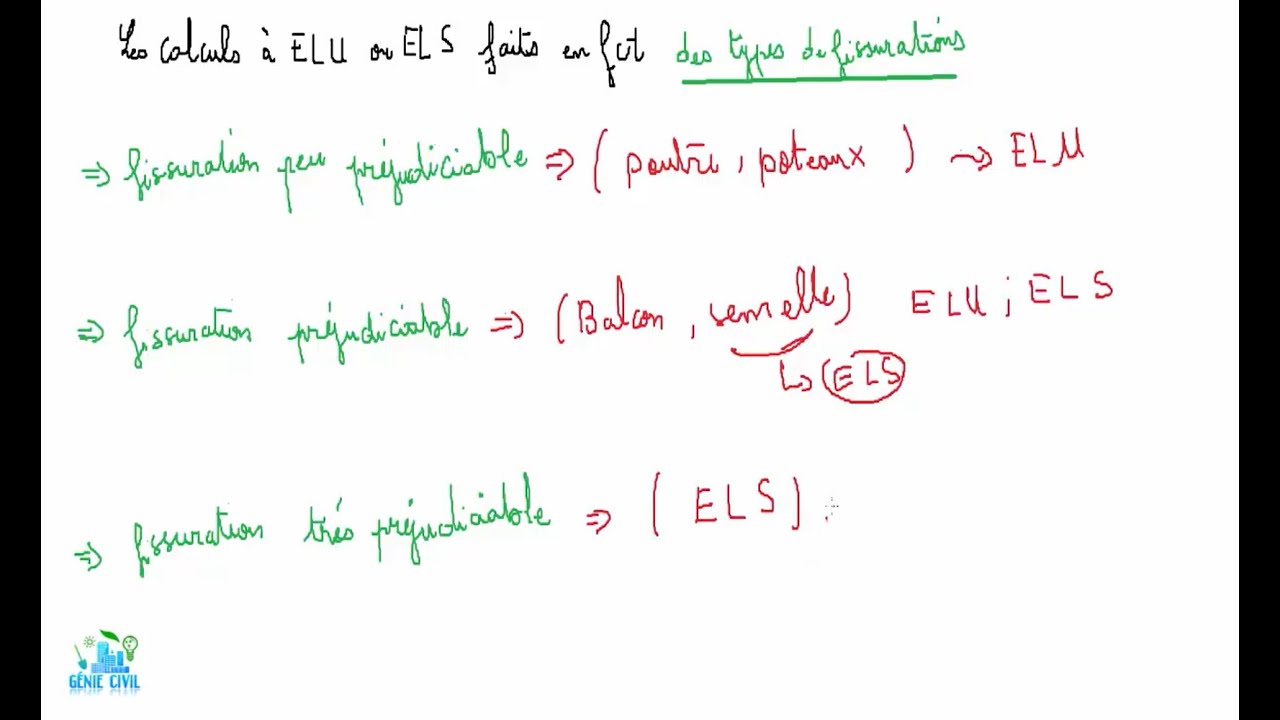 Les calculs à ELU ou ELS faits en fct des types de fissurations
⇒ fissuration peu préjudiciable ⇒ ( poutre, poteaux ) → ELU
⇒ fissuration préjudiciable ⇒ (Balcon, semelle) ELU ; ELS
↳ (ELS)
⇒ fissuration trés préjudiciable ⇒ ( ELS ) .
GÉNIE CIVIL